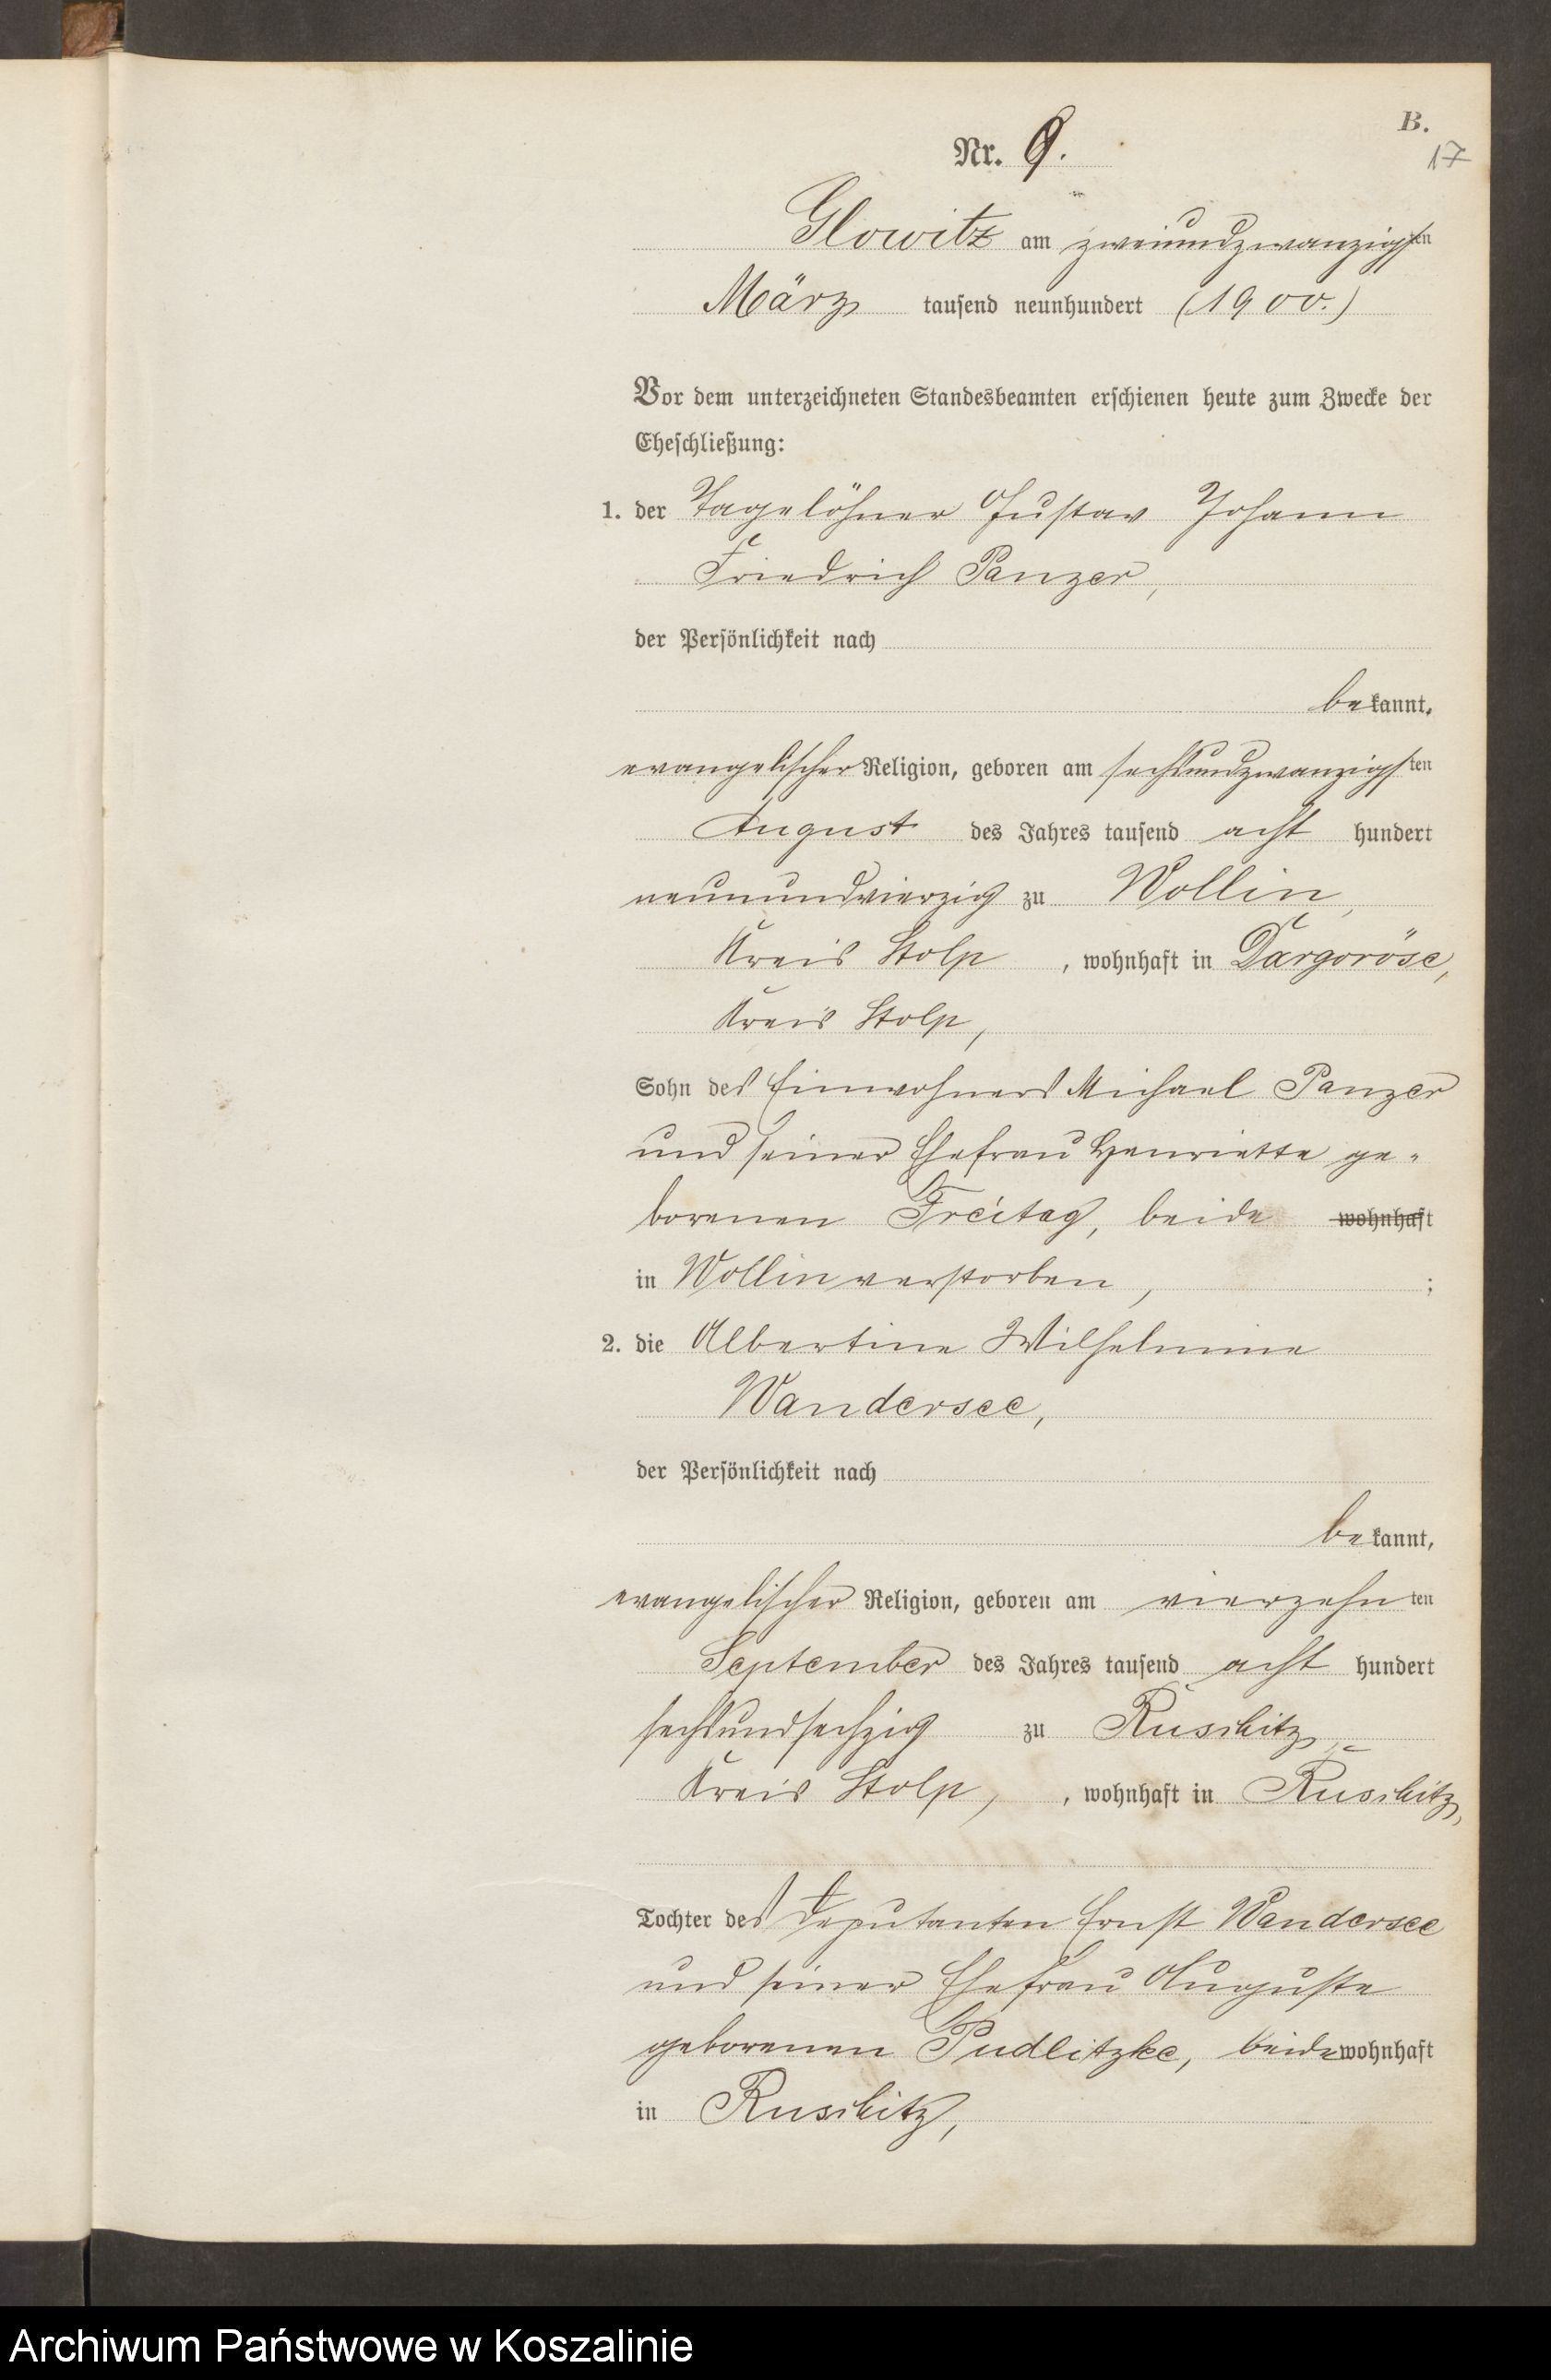 B.
Nr. 9.
17
Glowitz am zweiundzwanzigsten
März tausend neunhundert (1900.)
Vor dem unterzeichneten Standesbeamten erschienen heute zum Zwecke der
Eheschließung:
1. der Tagelöhner Gustav Johann
Friedrich Panzer,
der Persönlichkeit nach
bekannt,
evangelischer Religion, geboren am sechsundzwanzigsten
August des Jahres tausend acht hundert
neunundvierzig zu Wollin,
Kreis Stolp, wohnhaft in Dargoröse,
Kreis Stolp,
Sohn des Einwohners Michael Panzer
und seiner Ehefrau Henriette ge-
borenen Freitag, beide wohnhaft
in Wollin verstorben, ;
2. die Albertine Wilhelmine
Wandersee,
der Persönlichkeit nach
bekannt,
evangelischer Religion, geboren am vierzehnten
September des Jahres tausend acht hundert
sechsundsechzig zu Ruschitz,
Kreis Stolp, , wohnhaft in Ruschitz,
Tochter des Deputanten Ernst Wandersee
und seiner Ehefrau Auguste
geborenen Pudlitzke, beide wohnhaft
in Ruschitz,
Archiwum Państwowe w Koszalinie